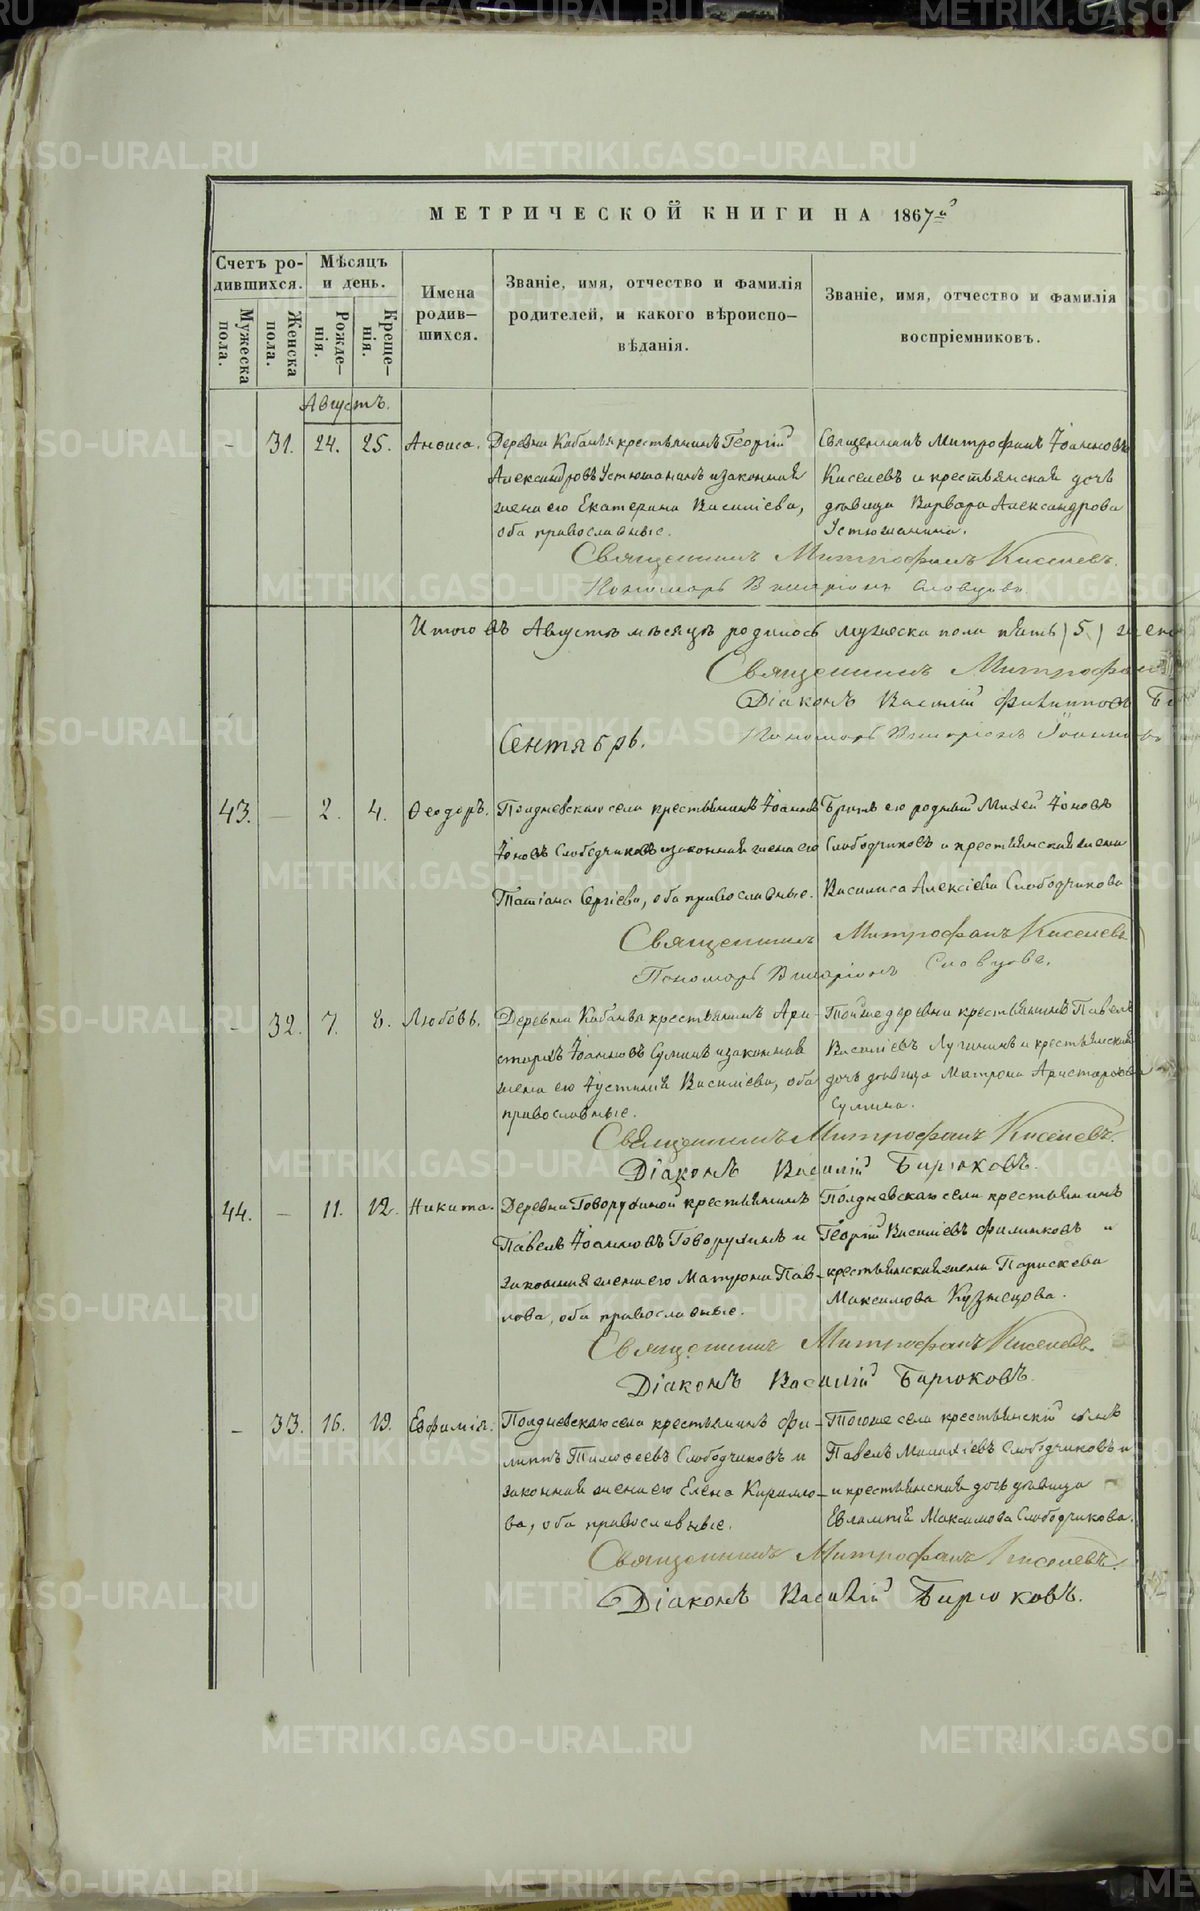 МЕТРИЧЕСКОЙ КНИГИ НА 1867й
Счетъ ро-
дившихся.
Мужеска
пола.
Женска
пола.
Мѣсяцъ
и день.
Рожде-
нія.
Креще-
нія.
Имена
родив-
шихся.
Званіе, имя, отчество и фамилія
родителей, и какого вѣроиспо-
вѣданія.
Званіе, имя, отчество и фамилія
воспріемниковъ.
Августъ.
- 31. 24. 25. Анѳиса.
Деревни Кабаньи крестьянинъ Георгій
Александровъ Устюжанинъ и законная
жена его Екатерина Василіева,
оба православные.
Священникъ Митрофанъ Іоанновъ
Киселевъ и крестьянская дочь
дѣвица Варвара Александрова
Устюжанина.
Священникъ Митрофанъ Киселевъ.
Пономарь Виссаріонъ Словцовъ.
Итого въ Августѣ мѣсяцѣ родилось мужеска пола пять (5)
Священникъ Митрофанъ
Діаконъ Василій Филипповъ
Пономарь Виссаріонъ Іоанновъ
Сентябрь.
43. - 2. 4. Ѳеодоръ.
Полдневскаго села крестьянинъ Іоаннъ
Іоновъ Слободчиковъ и законная жена его
Татіана Сергіева, оба православные.
Братъ его родный Михей Іоновъ
Слободчиковъ и крестьянская жена
Василиса Алексіева Слободчикова
Священникъ Митрофанъ Киселевъ
Пономарь Виссаріонъ Словцовъ.
- 32. 7. 8. Любовь.
Деревни Кабаньи крестьянинъ Ари-
стархъ Іоанновъ Суминъ и законная
жена его Іустинія Василіева, оба
православные.
Той же деревни крестьянинъ Павелъ
Василіевъ Лугининъ и крестьянская
дочь дѣвица Матрона Аристархова
Сумина.
Священникъ Митрофанъ Киселевъ.
Діаконъ Василій Бирюковъ.
44. - 11. 12. Никита.
Деревни Говорухиной крестьянинъ
Павелъ Іоанновъ Говорухинъ и
законная жена его Матрона Пав-
лова, оба православные.
Полдневскаго села крестьянинъ
Георгій Василіевъ Филинковъ и
крестьянская жена Параскева
Максимова Кузнецова.
Священникъ Митрофанъ Киселевъ.
Діаконъ Василій Бирюковъ.
- 33. 16. 19. Евфимія.
Полдневскаго села крестьянинъ Фи-
липпъ Тимоѳеевъ Слободчиковъ и
законная жена его Елена Кирилло-
ва, оба православные.
Того же села крестьянскій сынъ
Павелъ Малахіевъ Слободчиковъ и
и крестьянская дочь дѣвица
Евлампія Максимова Слободчикова.
Священникъ Митрофанъ Киселевъ.
Діаконъ Василій Бирюковъ.
METRIKI.GASO-URAL.RU